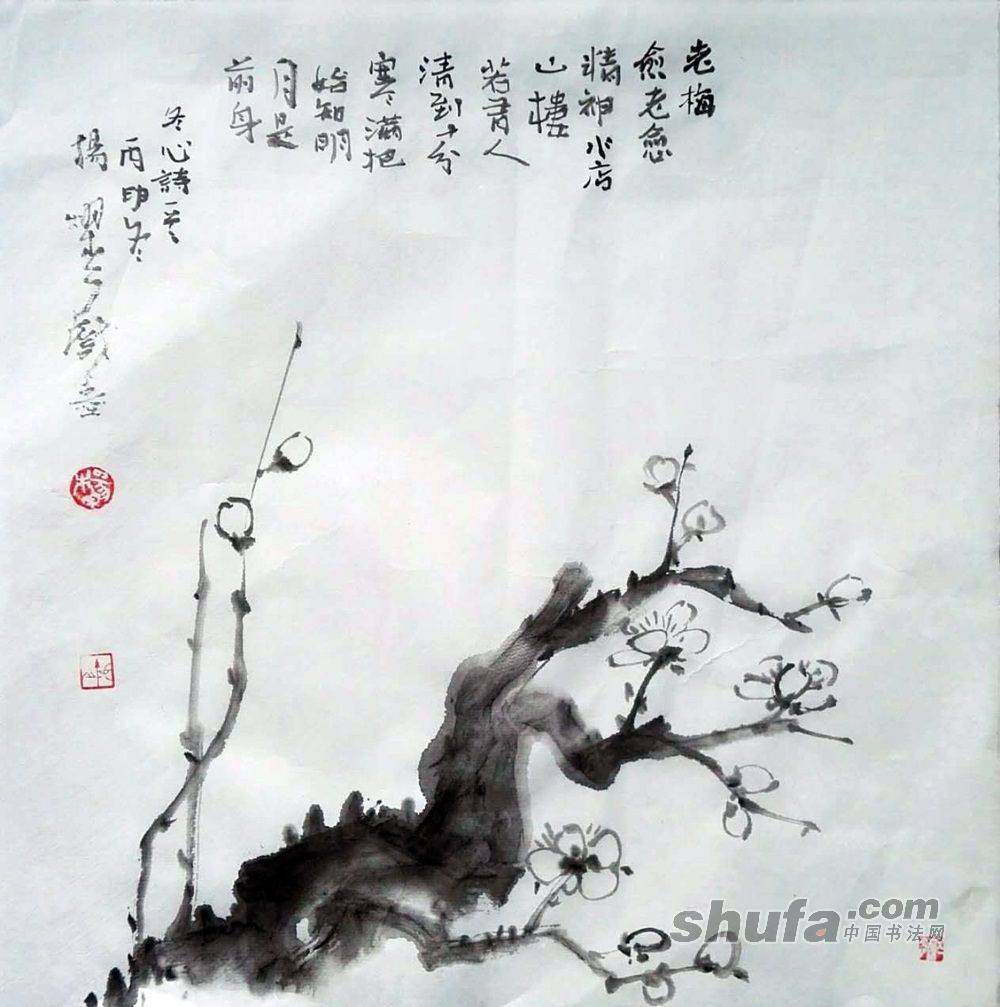 老梅
愈老愈
精神水店
山樓
若有人
清到十分
寒滿把
始知明
月是
前身
冬心詩一
丙申冬
楊
shufa.com
中国书法网